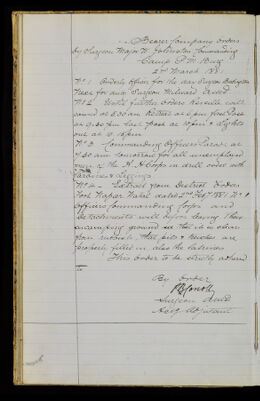 Bearer Company Orders
by Surgeon Major W. Johnston Commanding
Camp P.M. Burg
2nd March 1881
No 1 Orderly Officer for the day Surgeon
Next for duty Surgeon
No 2 Until further orders Reveille will
sound at 5.30 am Retreat at 6 pm First Post
at 9.30 pm last post at 10 pm & Lights
out at 10.15 pm
No 3 Commanding Officers Parade at
7.30 am tomorrow for all unemployed
men of the A.H. Corps in drill order with
& Leggings
No 4 Extract from District Orders
Fort Napier Natal dated 2nd Feby 1881 No 1
Officers Commanding Corps and
Detachments will before leaving their
encamping ground see that it is clean
from rubbish, that pits & trenches are
properly filled in also the latrines
This order to be strictly adhered
By order
Surgeon
Actg Adjutant